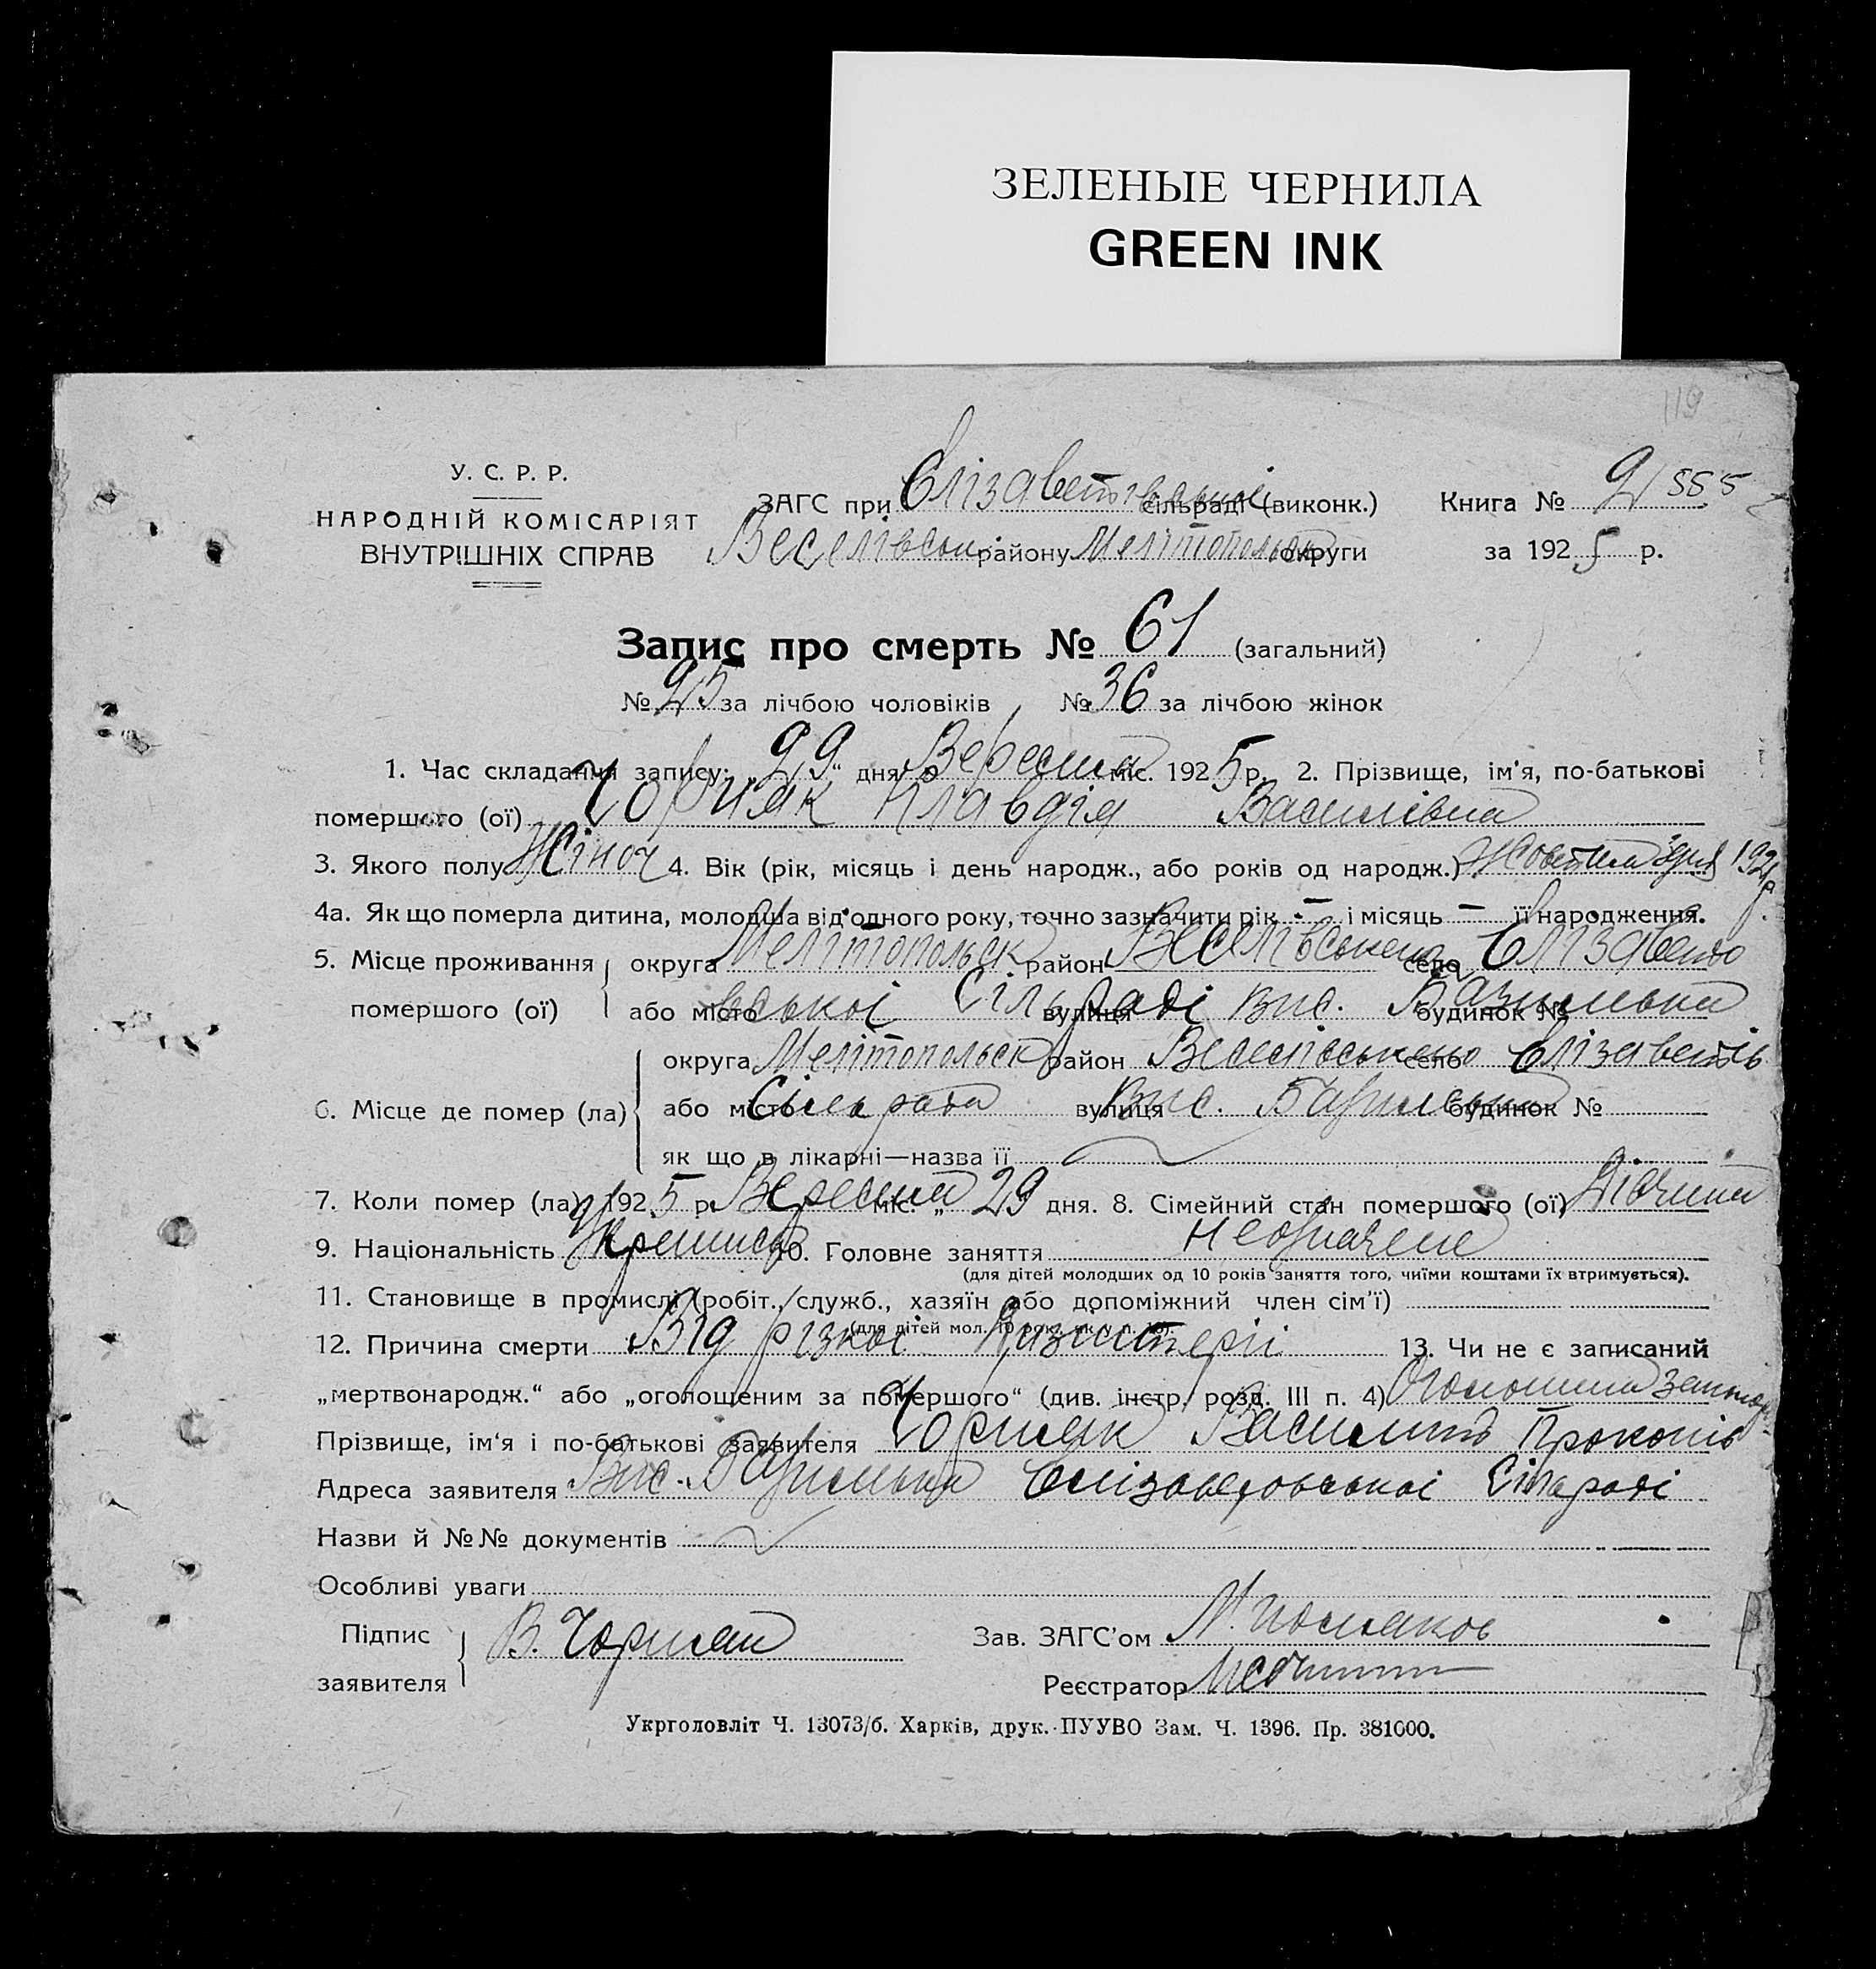 ЗЕЛЕНЫЕ ЧЕРНИЛА
GREEN INK
119
У. С. Р. Р.
НАРОДНІЙ КОМІСАРІЯТ
ВНУТРІШНІХ СПРАВ
ЗАГС при Єлізаветівської сільраді (виконк.) Книга № 2/555
Веселівськ. району Мелітопольск округи за 1925 р.
Запис про смерть № 61 (загальний)
№ 25 за лічбою чоловіків № 36 за лічбою жінок
1. Час складання запису: „29“ дня Вересня міс. 1925 р. 2. Прізвище, ім'я, по-батькові
помершого (ої) Чорняк Клавдія Василівна
3. Якого полу Жіноч 4. Вік (рік, місяць і день народж., або років од народж.) Жовтня дня 192 р
4а. Як що померла дитина, молодша від одного року, точно зазначити рік – і місяць – її народження.
5. Місце проживання округа Мелітопольск район Веселівського село Єлізавето
помершого (ої) або місто вської Сільраді вулиця Вис. будинок №
округа Мелітопольск район Веселівського село Єлізаветів
6. Місце де помер (ла) або місто Сільрада вулиця Вис. будинок №
як що в лікарні—назва її
7. Коли помер (ла) 1925 р. Вересня міс. „29 дня. 8. Сімейний стан помершого (ої) Дівчина
9. Національність 10. Головне заняття неозначене
(для дітей молодших од 10 років заняття того, чиїми коштами їх втримується).
11. Становище в промислі (робіт., служб., хазяїн або допоміжний член сім'ї)
(для дітей мол. 10 рок., як у п. 10).
12. Причина смерти Від різкої Дизентерії 13. Чи не є записаний
„мертвонародж.“ або „оголошеним за помершого“ (див. інстр. розд. III п. 4) Оголошена
Прізвище, ім'я і по-батькові заявителя Чорняк Василий Прокопів
Адреса заявителя Вис. Єлізаветовської Сільраді
Назви й №№ документів
Особливі уваги
Підпис
заявителя В. Чорняк
Зав. ЗАГС'ом
Реєстратор
Укрголовліт Ч. 13073/б. Харків, друк. ПУУВО Зам. Ч. 1396. Пр. 381000.